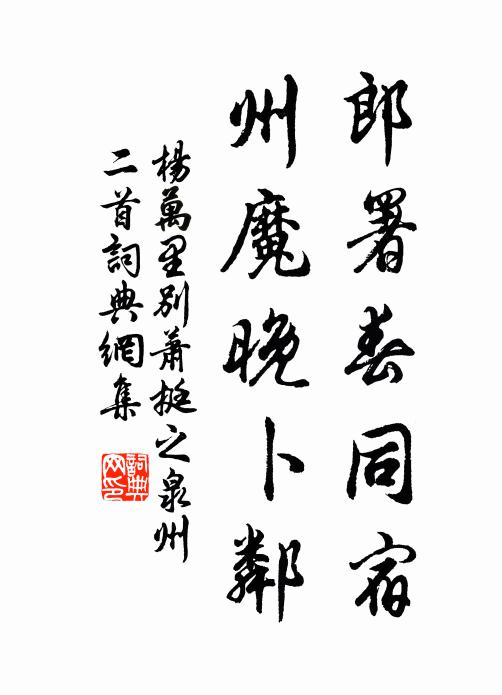 郎署春同宿
州麾晚卜鄰
楊萬里別蕭挺之泉州
二首詞典網集
詞典
网印